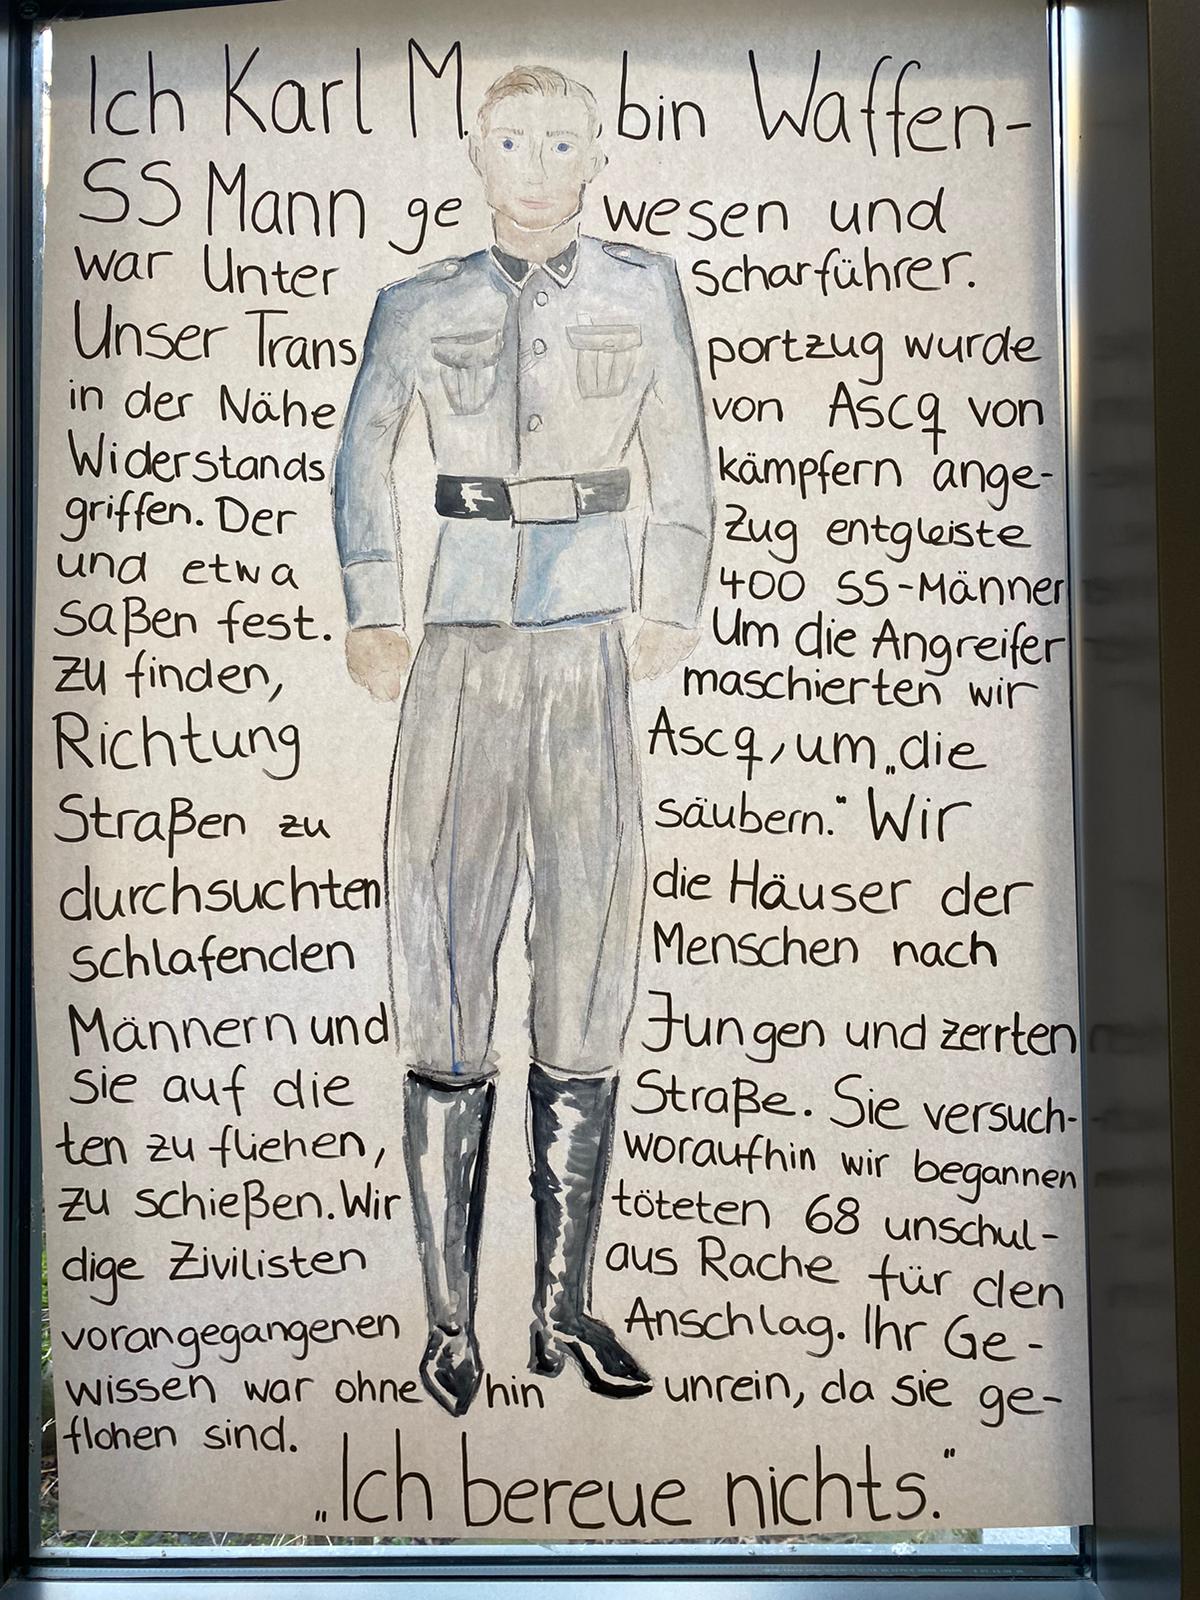 Ich Karl M. bin Waffen-
SS Mann ge wesen und
war Unter scharführer.
Unser Trans portzug wurde
in der Nähe von Ascq von
Widerstands kämpfern ange-
griffen. Der Zug entgleiste
und etwa 400 SS-Männer
saßen fest. Um die Angreifer
zu finden, maschierten wir
Richtung Ascq, um „die
Straßen zu säubern.“ Wir
durchsuchten die Häuser der
schlafenden Menschen nach
Männern und Jungen und zerrten
sie auf die Straße. Sie versuch-
ten zu fliehen, woraufhin wir begannen
zu schießen. Wir töteten 68 unschul-
dige Zivilisten aus Rache für den
vorangegangenen Anschlag. Ihr Ge-
wissen war ohne hin unrein, da sie ge-
flohen sind.
„Ich bereue nichts.“